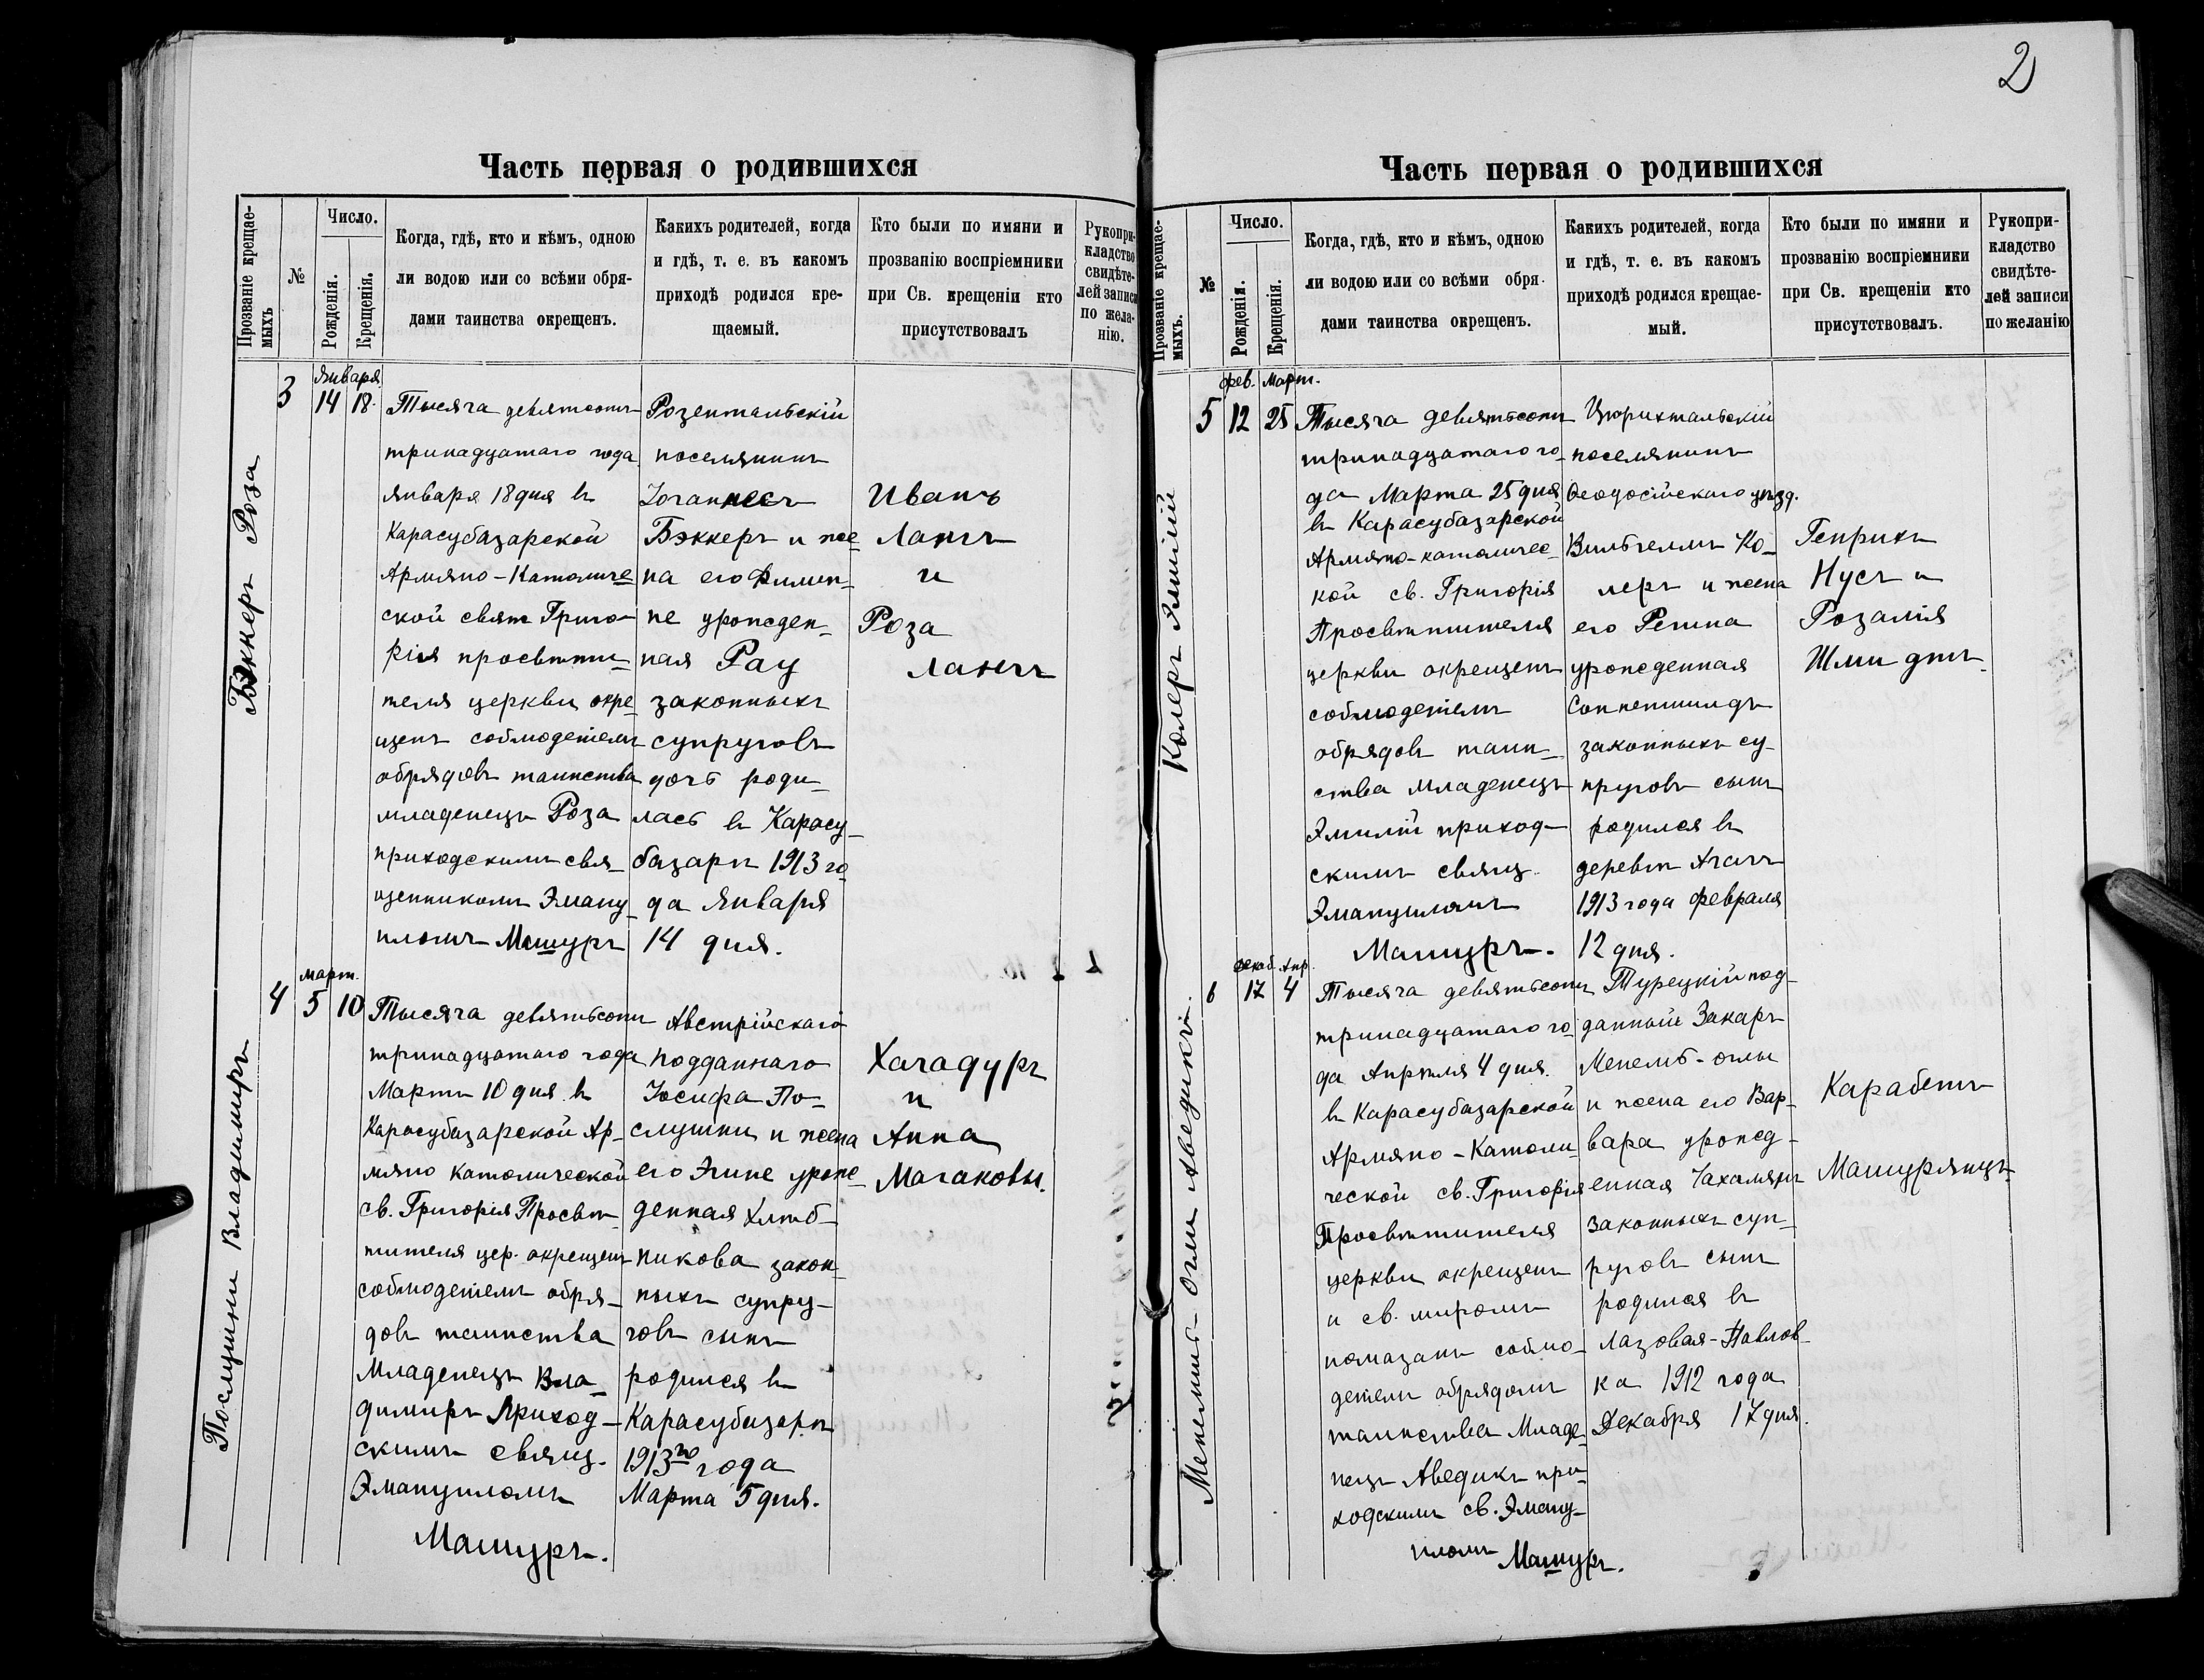 Часть первая о родившихся
Прозваніе крещае-
мыхъ
№
Число.
Рожденія.
Крещенія.
Когда, гдѣ, кто и кѣмъ, одною
ли водою или со всѣми обря-
дами таинства окрещенъ.
Какихъ родителей, когда
и гдѣ, т. е. въ какомъ
приходѣ родился кре-
щаемый.
Кто были по имяни и
прозванію воспріемники
при Св. крещеніи кто
присутствовалъ
Рукопри-
кладство
свидѣте-
лей записи
по жела-
нію.
Бэккеръ Роза
3
Января
14 18.
Тысяча девятьсотъ
тринадцатаго года
Января 18 дня въ
Карасубазарской
Армяно-Католиче
ской свят Григо-
рія просвѣти-
теля церкви окре-
щенъ соблюдетемъ
обрядовъ таинства
младенецъ Роза
приходскимъ свя-
щенникомъ Эману-
иломъ Машуръ
Розентальскій
поселянинъ
Іоганнесъ
Бэккеръ и же-
на его Филип-
пе урожден-
ная Рау
законныхъ
супруговъ
дочь роди-
лась въ Карасу-
базарѣ 1913 го
да Января
14 дня.
Иванъ
Лангъ
и
Роза
Лангъ
Послушни Владимиръ
4
Март.
5 10
Тысяча девятьсотъ
тринадцатаго года
Мартъ 10 дня въ
Карасубазарской Ар-
мяно Католической
св. Григорія Просвѣ-
тителя цер. окрещенъ
соблюдетемъ обря-
довъ таинства
Младенецъ Вла-
димиръ Приход-
скимъ свящ.
Эмануиломъ
Машуръ.
Австрійскаго
подданнаго
Іосифа По-
слушни и жена
его Эгине урож-
денная Хлѣб-
никова закон-
ныхъ супру-
говъ сынъ
родился въ
Карасубазарѣ
1913го года
Марта 5 дня.
Хачадуръ
и
Анна
Магаковы.
2
Часть первая о родившихся
Прозваніе крещае-
мыхъ.
№
Число.
Рожденія.
Крещенія.
Когда, гдѣ, кто и кѣмъ, одною
ли водою или со всѣми обря-
дами таинства окрещенъ.
Какихъ родителей, когда
и гдѣ, т. е. въ какомъ
приходѣ родился крещае-
мый.
Кто были по имяни и
прозванію воспріемники
при Св. крещеніи кто
присутствовалъ.
Рукопри-
кладство
свидѣте-
лей записи
по желанію
Колеръ Эмилій
5
Фев. Март.
12 25
Тысяча девятьсотъ
тринадцатаго го-
да Марта 25 дня
въ Карасубазарской
Армяно-католичес-
кой св. Григорія
Просвѣтителя
церкви окрещенъ
соблюдетемъ
обрядовъ таин-
ства младенецъ
Эмилій приход-
скимъ свящ.
Эмануиломъ
Машуръ.
Цюрихтальскій
поселянинъ
Ѳеодосійскаго уѣзд.
Вильгелмъ Ко-
леръ и жена
его Регина
урожденная
Соннешильдъ
законныхъ су-
пруговъ сынъ
родился въ
деревнѣ Агачъ
1913 года Февраля
12 дня.
Генрихъ
Нусъ и
Розалія
Шмидтъ
Менемшъ-Оглы Аведикъ.
6
Декаб. Апр.
17 4
Тысяча девятьсотъ
тринадцатаго го-
да Апрѣля 4 дня.
въ Карасубазарской
Армяно-Католи-
ческой св. Григорія
Просвѣтителя
церкви окрещенъ
и св. миромъ
помазанъ соблю-
детемъ обрядомъ
таинства Младе-
нецъ Аведикъ при-
ходскимъ св. Эману-
иломъ Машуръ.
Турецкій под-
данный Закаръ
Менемь-оглы
и жена его Вар-
вара урожд-
енная Чахалянъ
законныхъ суп-
руговъ сынъ
родился въ
Лазовая-Павлов-
ка 1912 года
Декабря 17 дня.
Карабетъ
Машурянцъ